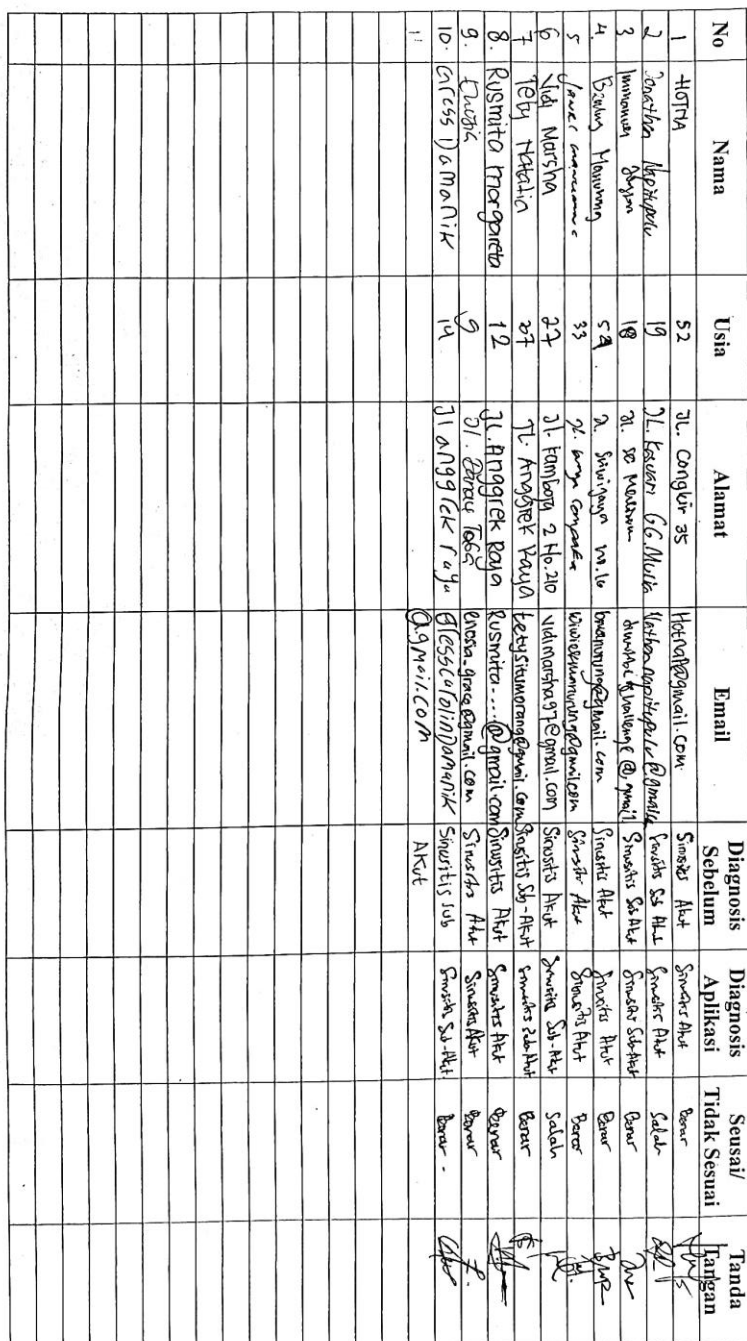 No Nama Usia Alamat Email Diagnosis Sebelum Diagnosis Aplikasi Seusai/ Tidak Sesuai Tanda Tangan
1 HOTNA 52 JL. Congkir 35 HotnaP@gmail.com Sinusitis Akut Sinusitis Akut Benar
2 Jonathan Napitupulu 19 JL. Kasuari GG. Mulia Sinusitis Sub Akut Sinusitis Akut Salah
3 Immanuel 18 JL. Sinusitis Sub Akut Sinusitis Sub-Akut Benar
4. Manurung Jl. Sriwijaya no. 16 Sinusitis Akut Sinusitis Akut Benar
5 33 Jl. Sinusitis Akut Sinusitis Akut Benar
6 Vidi Marsha 27 Jl. Tambora 2 No. 210 vidimarsha97@gmail.com Sinusitis Akut Sinusitis Sub-Akut Salah
7 Tety Natalia 27 JL. Anggrek Raya tetysitumorang@gmail.com Sinusitis Sub-Akut Sinusitis Sub-Akut Benar
8. Rusmita Margareta 12 JL. Anggrek Raya Rusmita....@gmail.com Sinusitis Akut Sinusitis Akut Benar
9. 9 Jl. Danau Toba enosia_grace@gmail.com Sinusitis Akut Sinusitis Akut Benar
10. Gress Damanik 14 Jl anggrek raya Gresscarolindamanik Sinusitis sub Sinusitis Sub-Akut Benar -
11 @gmail.com Akut